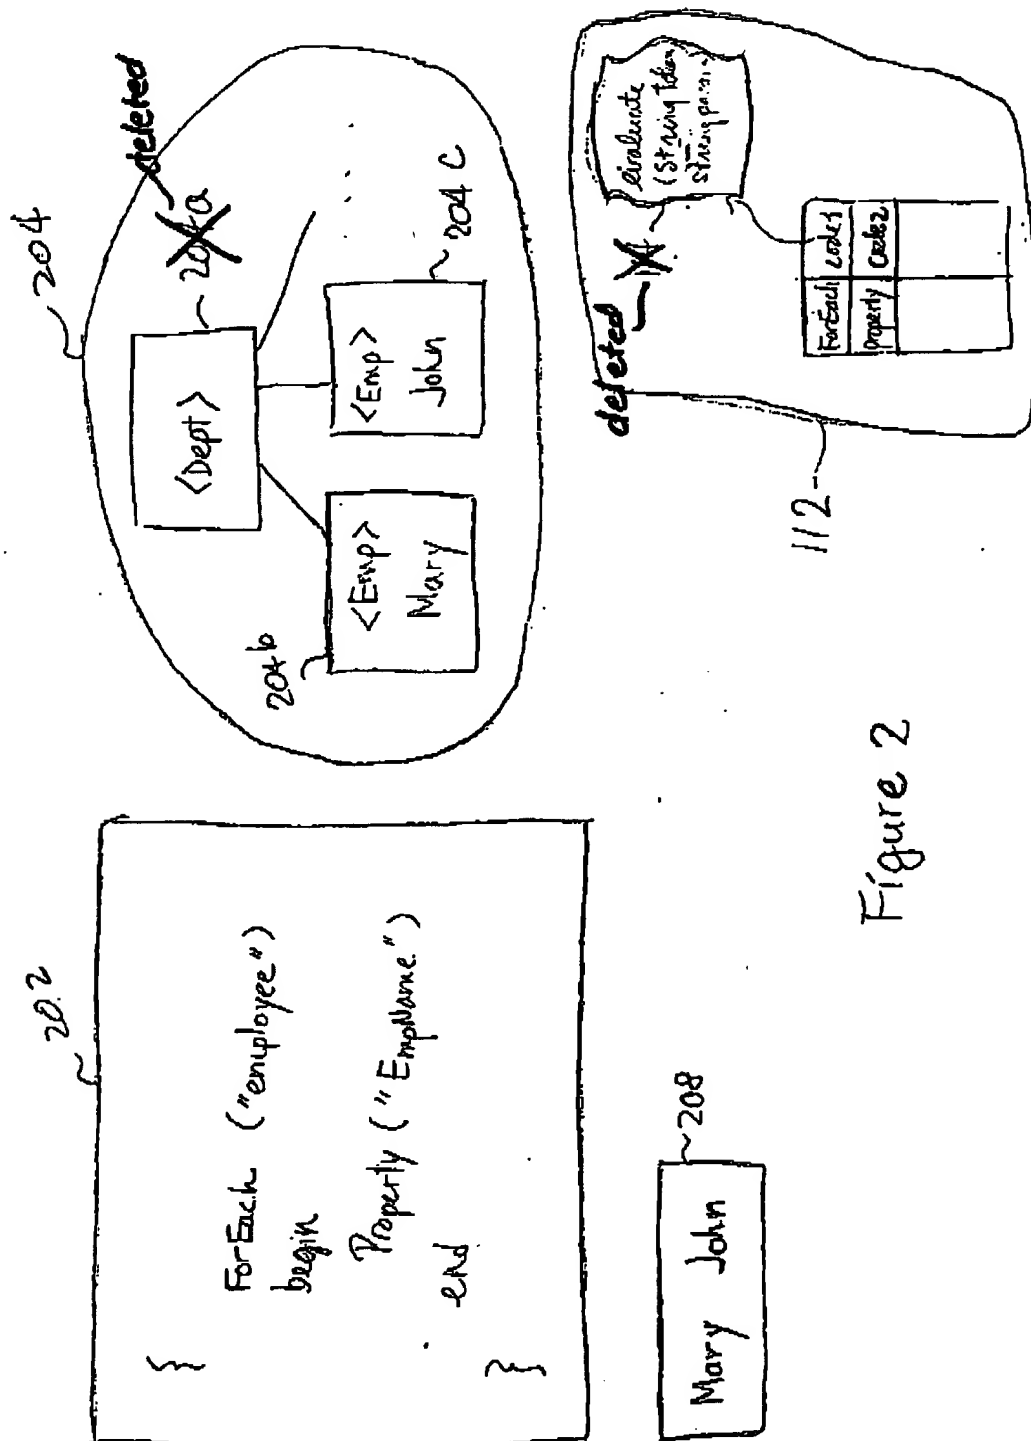 202
{
ForEach ("employee")
begin
Property ("EmpName")
end
}
208
Mary John
204
deleted
204a
<Dept>
204b
<Emp>
Mary
<Emp>
John
204 c
...
deleted
evaluate
(String token
112
ForEach code1
Property Code2
Figure 2